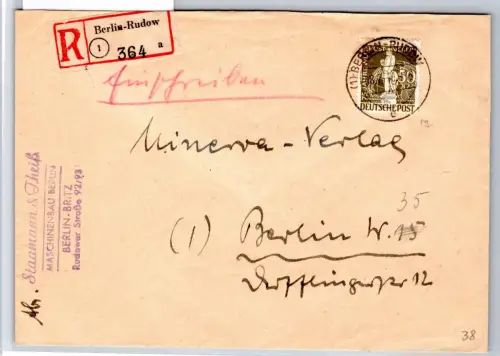 R
Berlin-Rudow
(1) 364 a
Einschreiben
(1) BERLIN-RUDOW
c
50
DEUTSCHE POST
Minerva-Verlag
35
(1) Berlin W. 15
Derfflingerstr 12
Abs. Staumann & Theiß
MASCHINENBAU BERLIN
BERLIN-BRITZ
Rudower Straße 92/93
38